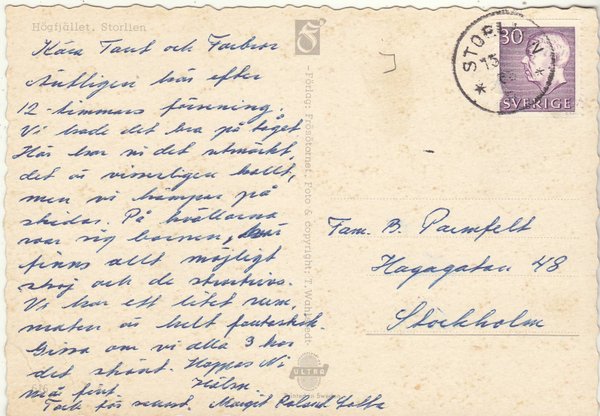 Högfjället. Storlien
Kära Tant och Farbror
Äntligen här efter
12-timmars försening.
Vi hade det bra på tåget
Här har vi det utmärkt,
det är visserligen kallt,
men vi kämpar på
skidor. På kvällarna
roar sig barnen, här
finns allt möjligt
skoj och de
Vi har ett litet rum,
maten är helt fantastisk.
Gissa om vi alla 3 har
det skönt. Hoppas Ni
mår fint. Hälsn.
Tack för senast. Margit Roland Lotta
Förlag: Frösötornet. Foto & copyright: T.
ULTRA
STORLIEN
13
30
SVERIGE
Fam. B. Parmfelt
Hagagatan 48
Stockholm